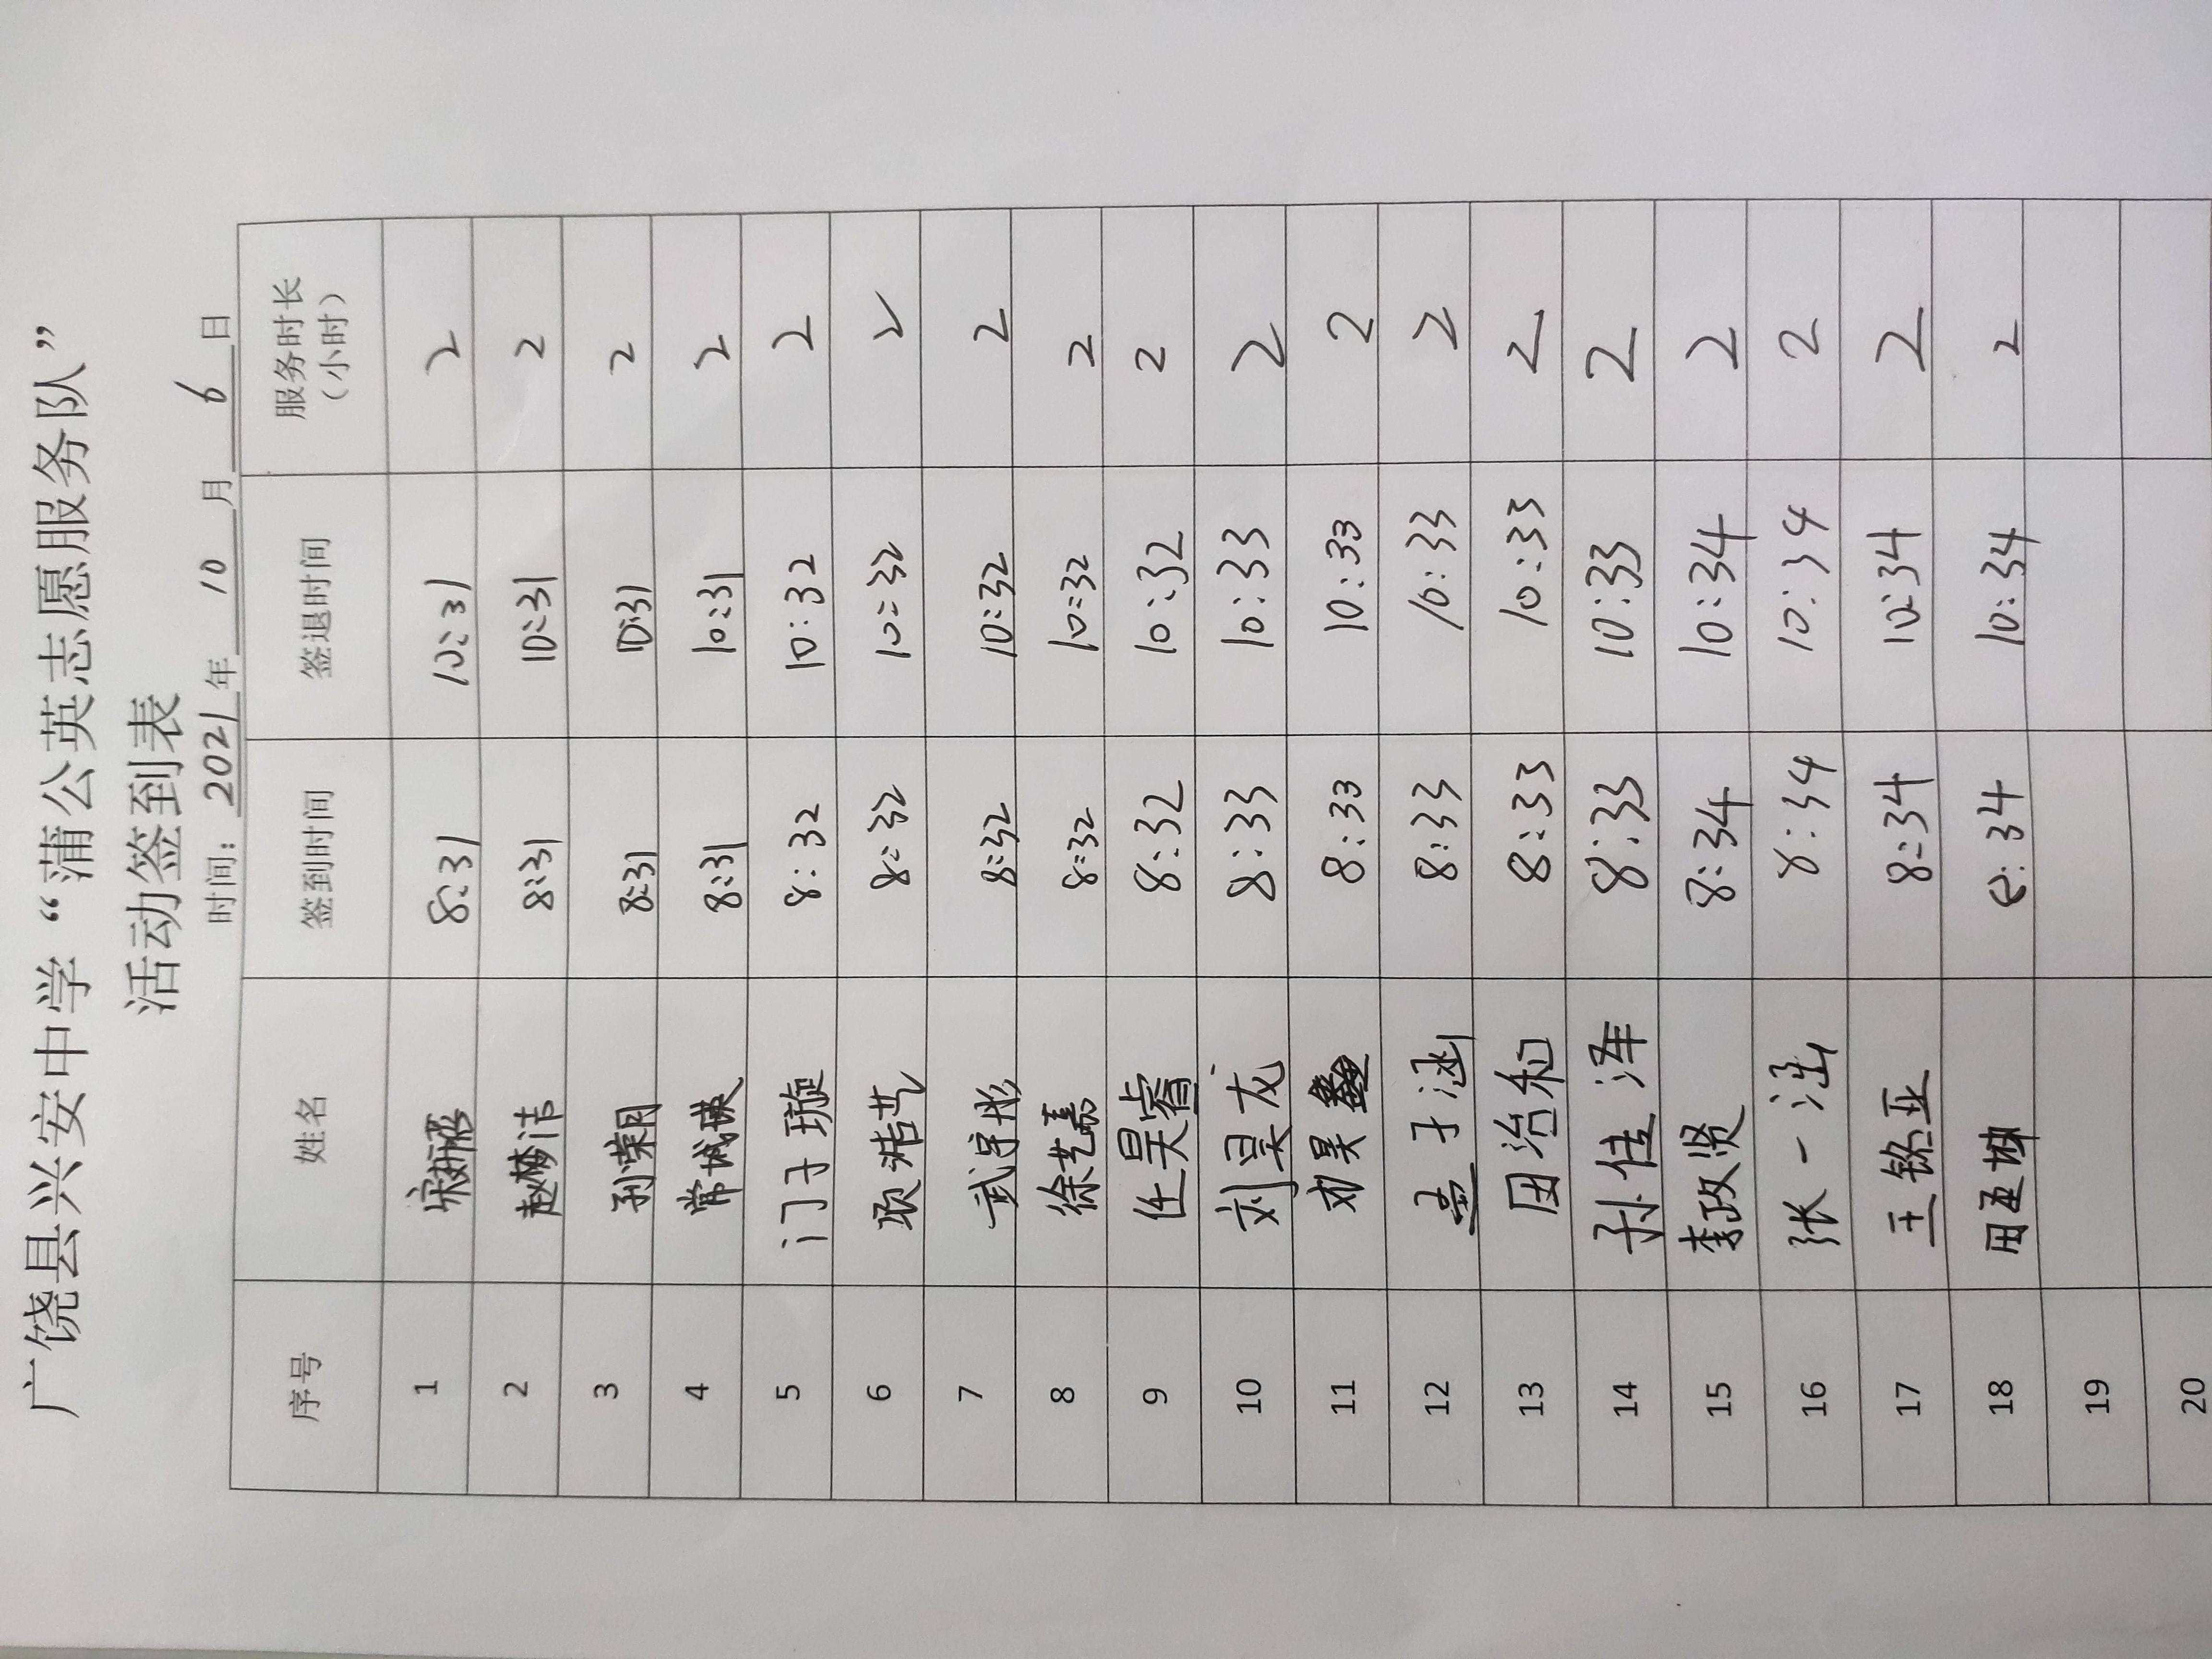 广饶县兴安中学“蒲公英志愿服务队”
活动签到表
时间：2021年 10 月 6 日
序号 姓名 签到时间 签退时间 服务时长（小时）
1 8:31 10:31 2
2 赵梦洁 8:31 10:31 2
3 孙荣月 8:31 10:31 2
4 常诚瑛 8:31 10:31 2
5 门子璇 8:32 10:32 2
6 项浩艺 8:32 10:32 2
7 武宇彤 8:32 10:32 2
8 徐艺嘉 8:32 10:32 2
9 任昊睿 8:32 10:32 2
10 刘昊龙 8:33 10:33 2
11 刘昊鑫 8:33 10:33 2
12 子涵 8:33 10:33 2
13 田治和 8:33 10:33 2
14 孙佳泽 8:33 10:33 2
15 李政贤 8:34 10:34 2
16 张一泓 8:34 10:34 2
17 王铭亚 8:34 10:34 2
18 田孟琳 8:34 10:34 2
19
20